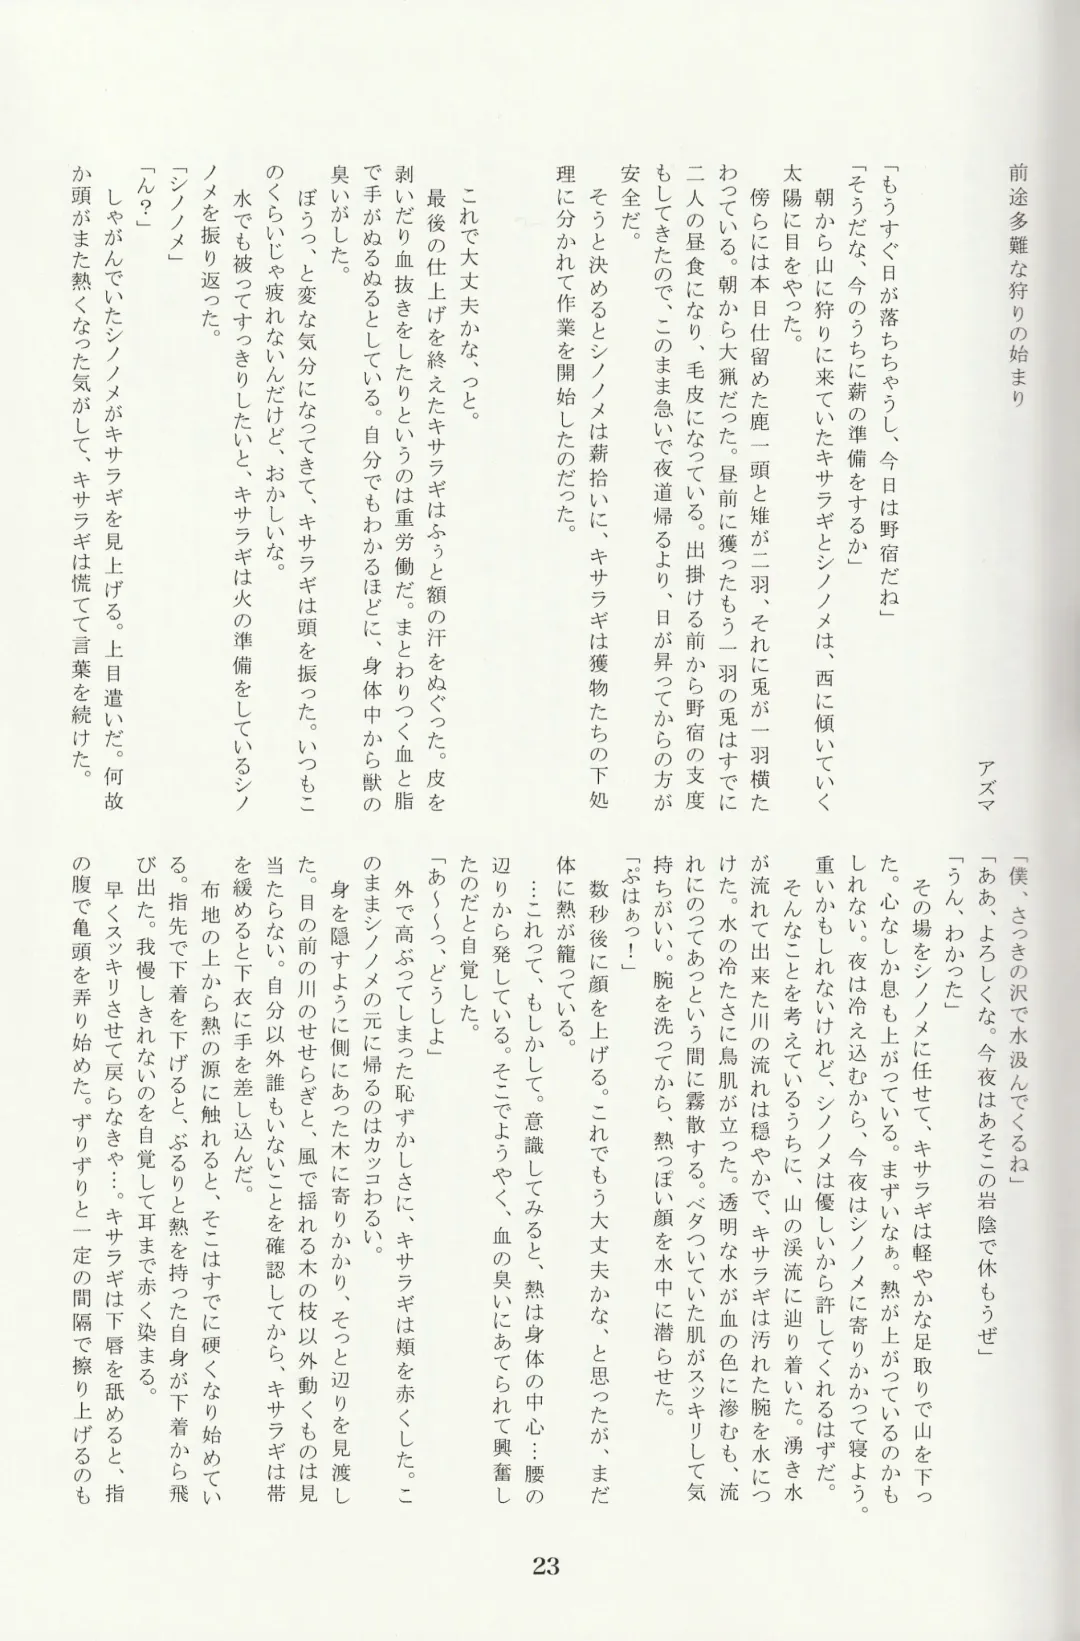 前途多難な狩りの始まり
アズマ
「もうすぐ日が落ちちゃうし、今日は野宿だね」
「そうだな、今のうちに薪の準備をするか」
朝から山に狩りに来ていたキサラギとシノノメは、西に傾いていく
太陽に目をやった。
傍らには本日仕留めた鹿一頭と雉が二羽、それに兎が一羽横た
わっている。朝から大猟だった。昼前に獲ったもう一羽の兎はすでに
二人の昼食になり、毛皮になっている。出掛ける前から野宿の支度
もしてきたので、このまま急いで夜道帰るより、日が昇ってからの方が
安全だ。
そうと決めるとシノノメは薪拾いに、キサラギは獲物たちの下処
理に分かれて作業を開始したのだった。
これで大丈夫かな、っと。
最後の仕上げを終えたキサラギはふぅと額の汗をぬぐった。皮を
剥いだり血抜きをしたりというのは重労働だ。まとわりつく血と脂
で手がぬるぬるとしている。自分でもわかるほどに、身体中から獣の
臭いがした。
ぼうっ、と変な気分になってきて、キサラギは頭を振った。いつもこ
のくらいじゃ疲れないんだけど、おかしいな。
水でも被ってすっきりしたいと、キサラギは火の準備をしているシノ
ノメを振り返った。
「シノノメ」
「ん？」
しゃがんでいたシノノメがキサラギを見上げる。上目遣いだ。何故
か頭がまた熱くなった気がして、キサラギは慌てて言葉を続けた。
「僕、さっきの沢で水汲んでくるね」
「ああ、よろしくな。今夜はあそこの岩陰で休もうぜ」
「うん、わかった」
その場をシノノメに任せて、キサラギは軽やかな足取りで山を下っ
た。心なしか息も上がっている。まずいなぁ。熱が上がっているのかも
しれない。夜は冷え込むから、今夜はシノノメに寄りかかって寝よう。
重いかもしれないけれど、シノノメは優しいから許してくれるはずだ。
そんなことを考えているうちに、山の渓流に辿り着いた。湧き水
が流れて出来た川の流れは穏やかで、キサラギは汚れた腕を水につ
けた。水の冷たさに鳥肌が立った。透明な水が血の色に滲むも、流
れにのってあっという間に霧散する。ベタついていた肌がスッキリして気
持ちがいい。腕を洗ってから、熱っぽい顔を水中に潜らせた。
「ぷはぁっ！」
数秒後に顔を上げる。これでもう大丈夫かな、と思ったが、まだ
体に熱が籠っている。
…これって、もしかして。意識してみると、熱は身体の中心…腰の
辺りから発している。そこでようやく、血の臭いにあてられて興奮し
たのだと自覚した。
「あ～～っ、どうしよ」
外で高ぶってしまった恥ずかしさに、キサラギは頬を赤くした。こ
のままシノノメの元に帰るのはカッコわるい。
身を隠すように側にあった木に寄りかかり、そっと辺りを見渡し
た。目の前の川のせせらぎと、風で揺れる木の枝以外動くものは見
当たらない。自分以外誰もいないことを確認してから、キサラギは帯
を緩めると下衣に手を差し込んだ。
布地の上から熱の源に触れると、そこはすでに硬くなり始めてい
る。指先で下着を下げると、ぶるりと熱を持った自身が下着から飛
び出た。我慢しきれないのを自覚して耳まで赤く染まる。
早くスッキリさせて戻らなきゃ…。キサラギは下唇を舐めると、指
の腹で亀頭を弄り始めた。ずりずりと一定の間隔で擦り上げるのも
23